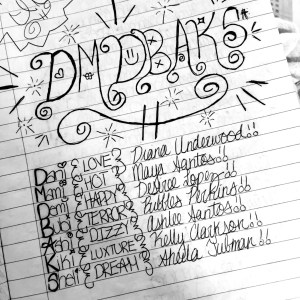 DMDBAKS
Dani {LOVE} Diana Underwood!!
Mami {HOT} Maya Santos!!
Des {HAPPY} Desiree Lopez!!
Bubs {TERROR} Bubbles Perkins!!
Ash {DIZZY} Ashlee Santos!!
Kiki {LUXTURE} Kelly Clarkson!!
Shei {DREAM} Sheila Tubman!!